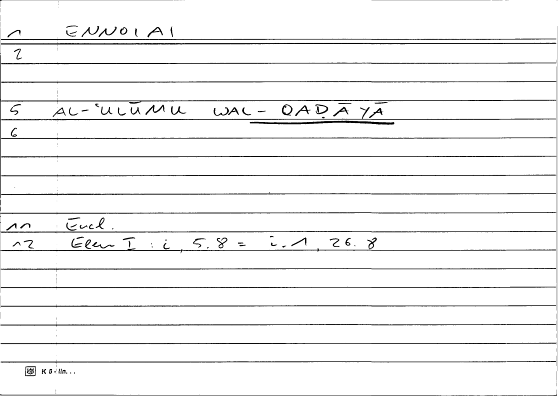 1 ENNOIAI
2
5 AL-ʿULŪMU WAL-QAḌĀYĀ
6
11 Eucl.
12 Elem I : i, 5.8 = i.1, 26.8
K 5